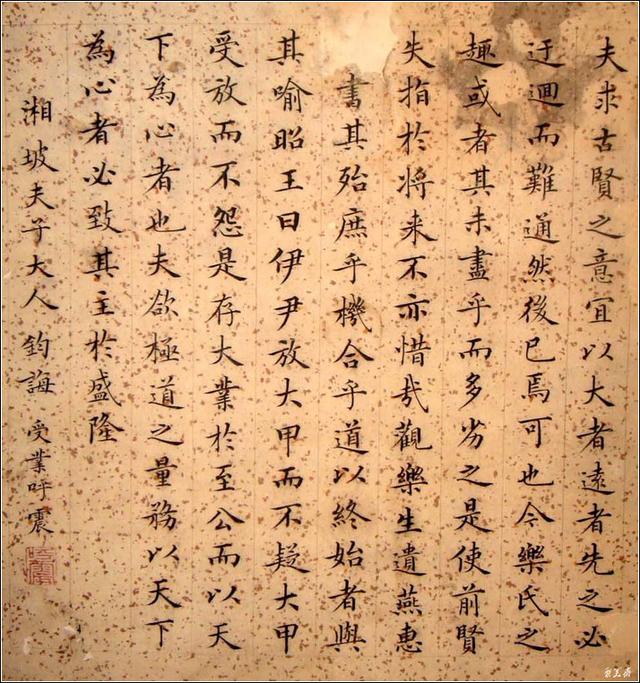 夫求古賢之意宜以大者遠者先之必
迂迴而難通然後已焉可也今樂氏之
趣或者其未盡乎而多劣之是使前賢
失指於将来不亦惜哉觀樂生遺燕惠
書其殆庶乎機合乎道以終始者與
其喻昭王曰伊尹放大甲而不疑大甲
受放而不怨是存大業於至公而以天
下為心者也夫欲極道之量務以天下
為心者必致其主於盛隆
湘坡夫子大人鈞誨 受業震